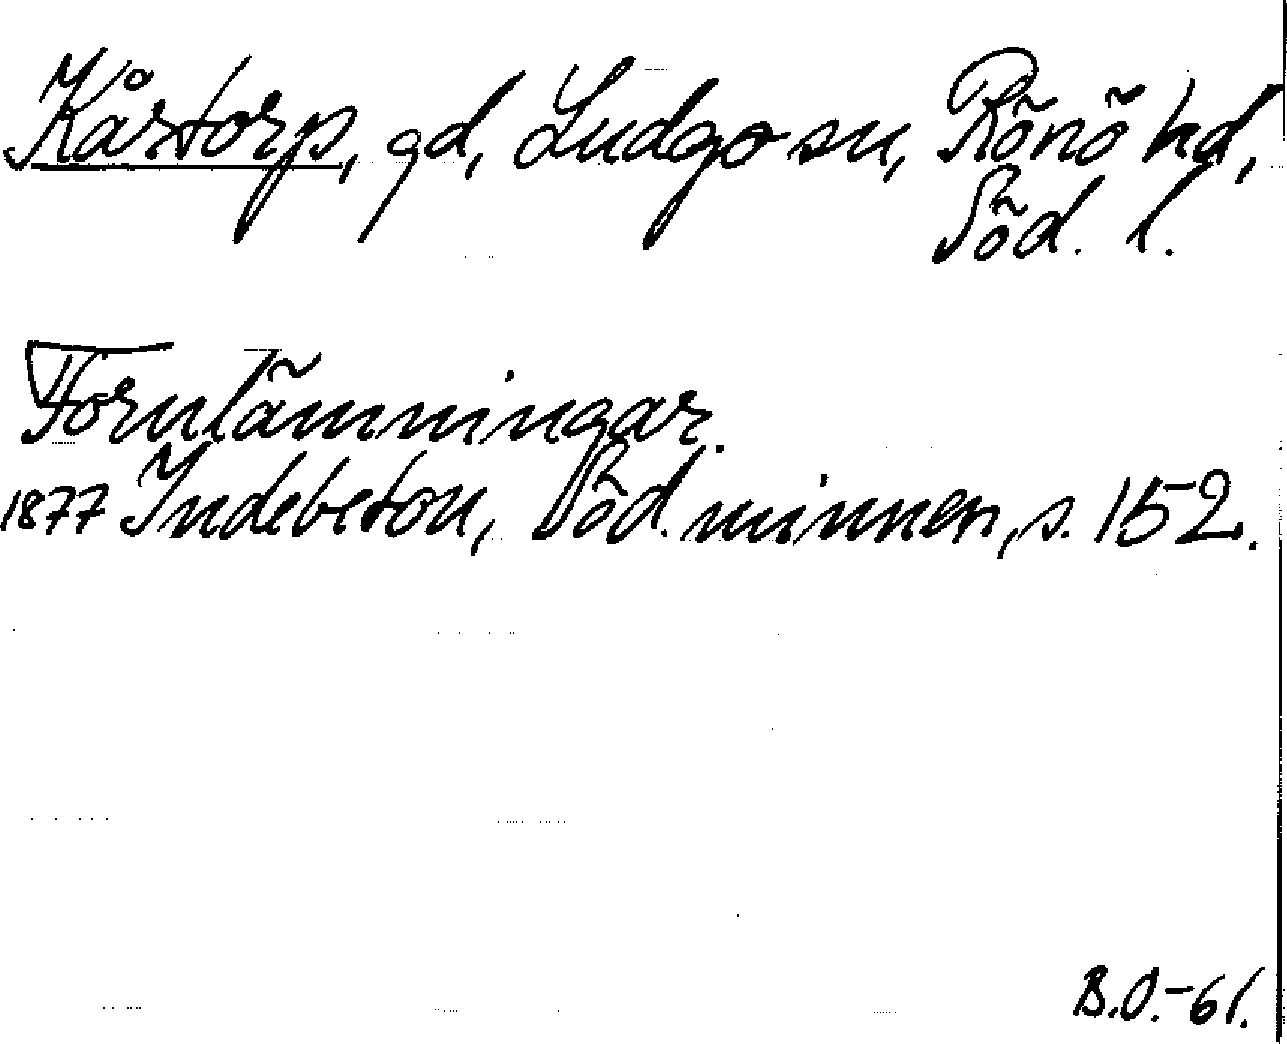 Kårtorp, gd, Ludgo sn, Rönö hd,
Söd. l.
Fornlämningar.
1877 Indebetou, Söd. minnen, s. 152.
B.O.-61.